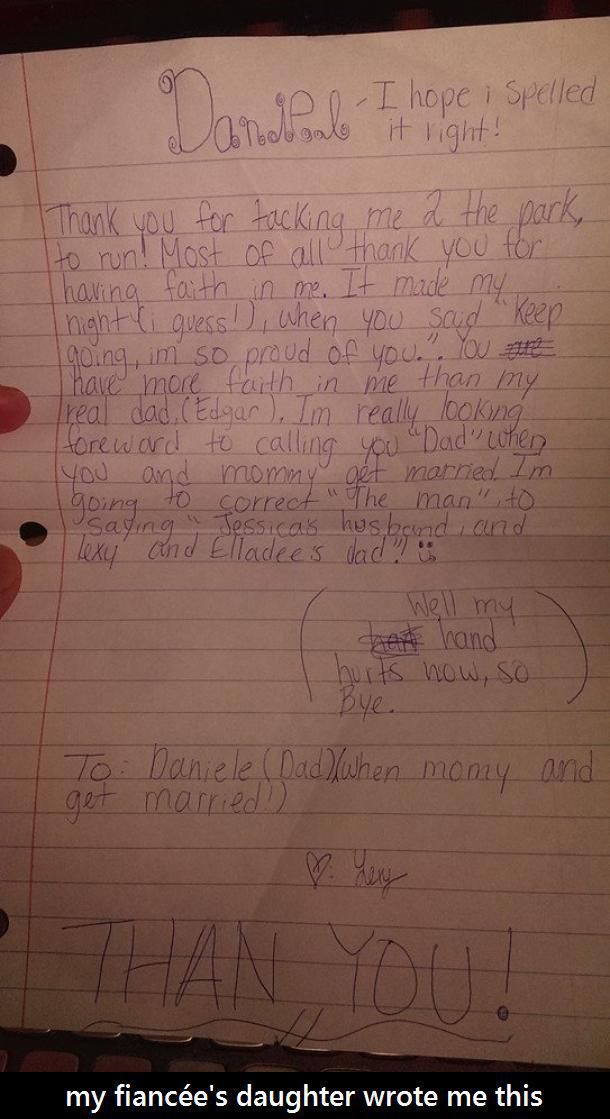 Daniel - I hope i spelled
it right!
Thank you for tacking me 2 the park,
to run! Most of all thank you for
having faith in me. It made my
night (i guess!), when you said "keep
going, im so proud of you.". You are
have more faith in me than my
real dad, (Edgar). Im really looking
foreward to calling you "Dad" when
you and mommy get married. Im
going to correct "The man", to
saying "Jessica's husband, and
lexy and Elladee's dad"!
(Well my
hand
hurts now, so
Bye.)
To: Daniele (Dad)(when momy and
get married!)
♡: Lexy
THAN YOU!
my fiancée's daughter wrote me this